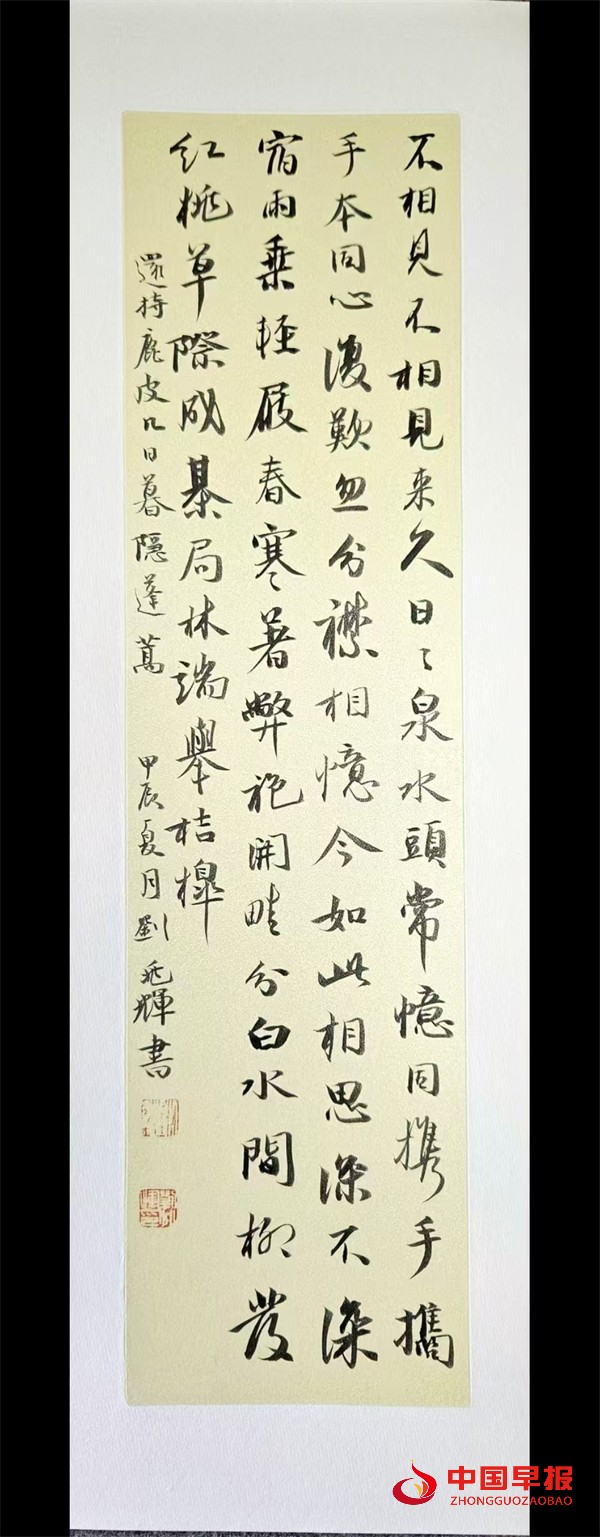 不相見不相見来久日々泉水頭常憶同携手攜
手本同心復歎忽分襟相憶今如此相思深不深
宿雨乗輕屐春寒著弊袍開畦分白水間柳發
红桃草際成棊局林端舉桔槔
還持鹿皮几日暮隱蓬蒿 甲辰夏月劉兆輝書
中国早报
ZHONGGUOZAOBAO